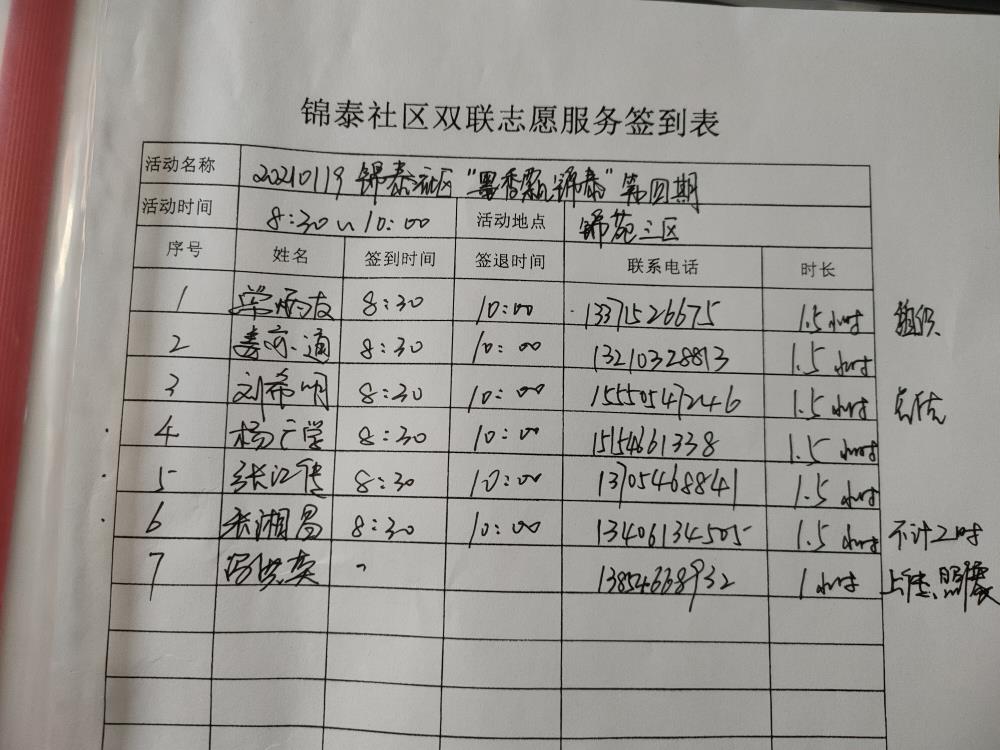 锦泰社区双联志愿服务签到表
活动名称 20210119 锦泰社区"墨香飘锦泰"第四期
活动时间 8:30~10:00 活动地点 锦苑三区
序号 姓名 签到时间 签退时间 联系电话 时长
1 8:30 10:00 13371526675 1.5小时 组织
2 8:30 10:00 13210328813 1.5小时
3 刘希明 8:30 10:00 15550547246 1.5小时
4 杨广学 8:30 10:00 1515461338 1.5小时
5 张江传 8:30 10:00 13705468841 1.5小时
6 张湘昌 8:30 10:00 13406134505 1.5小时 不计工时
7 13854668932 1小时 上传、照片